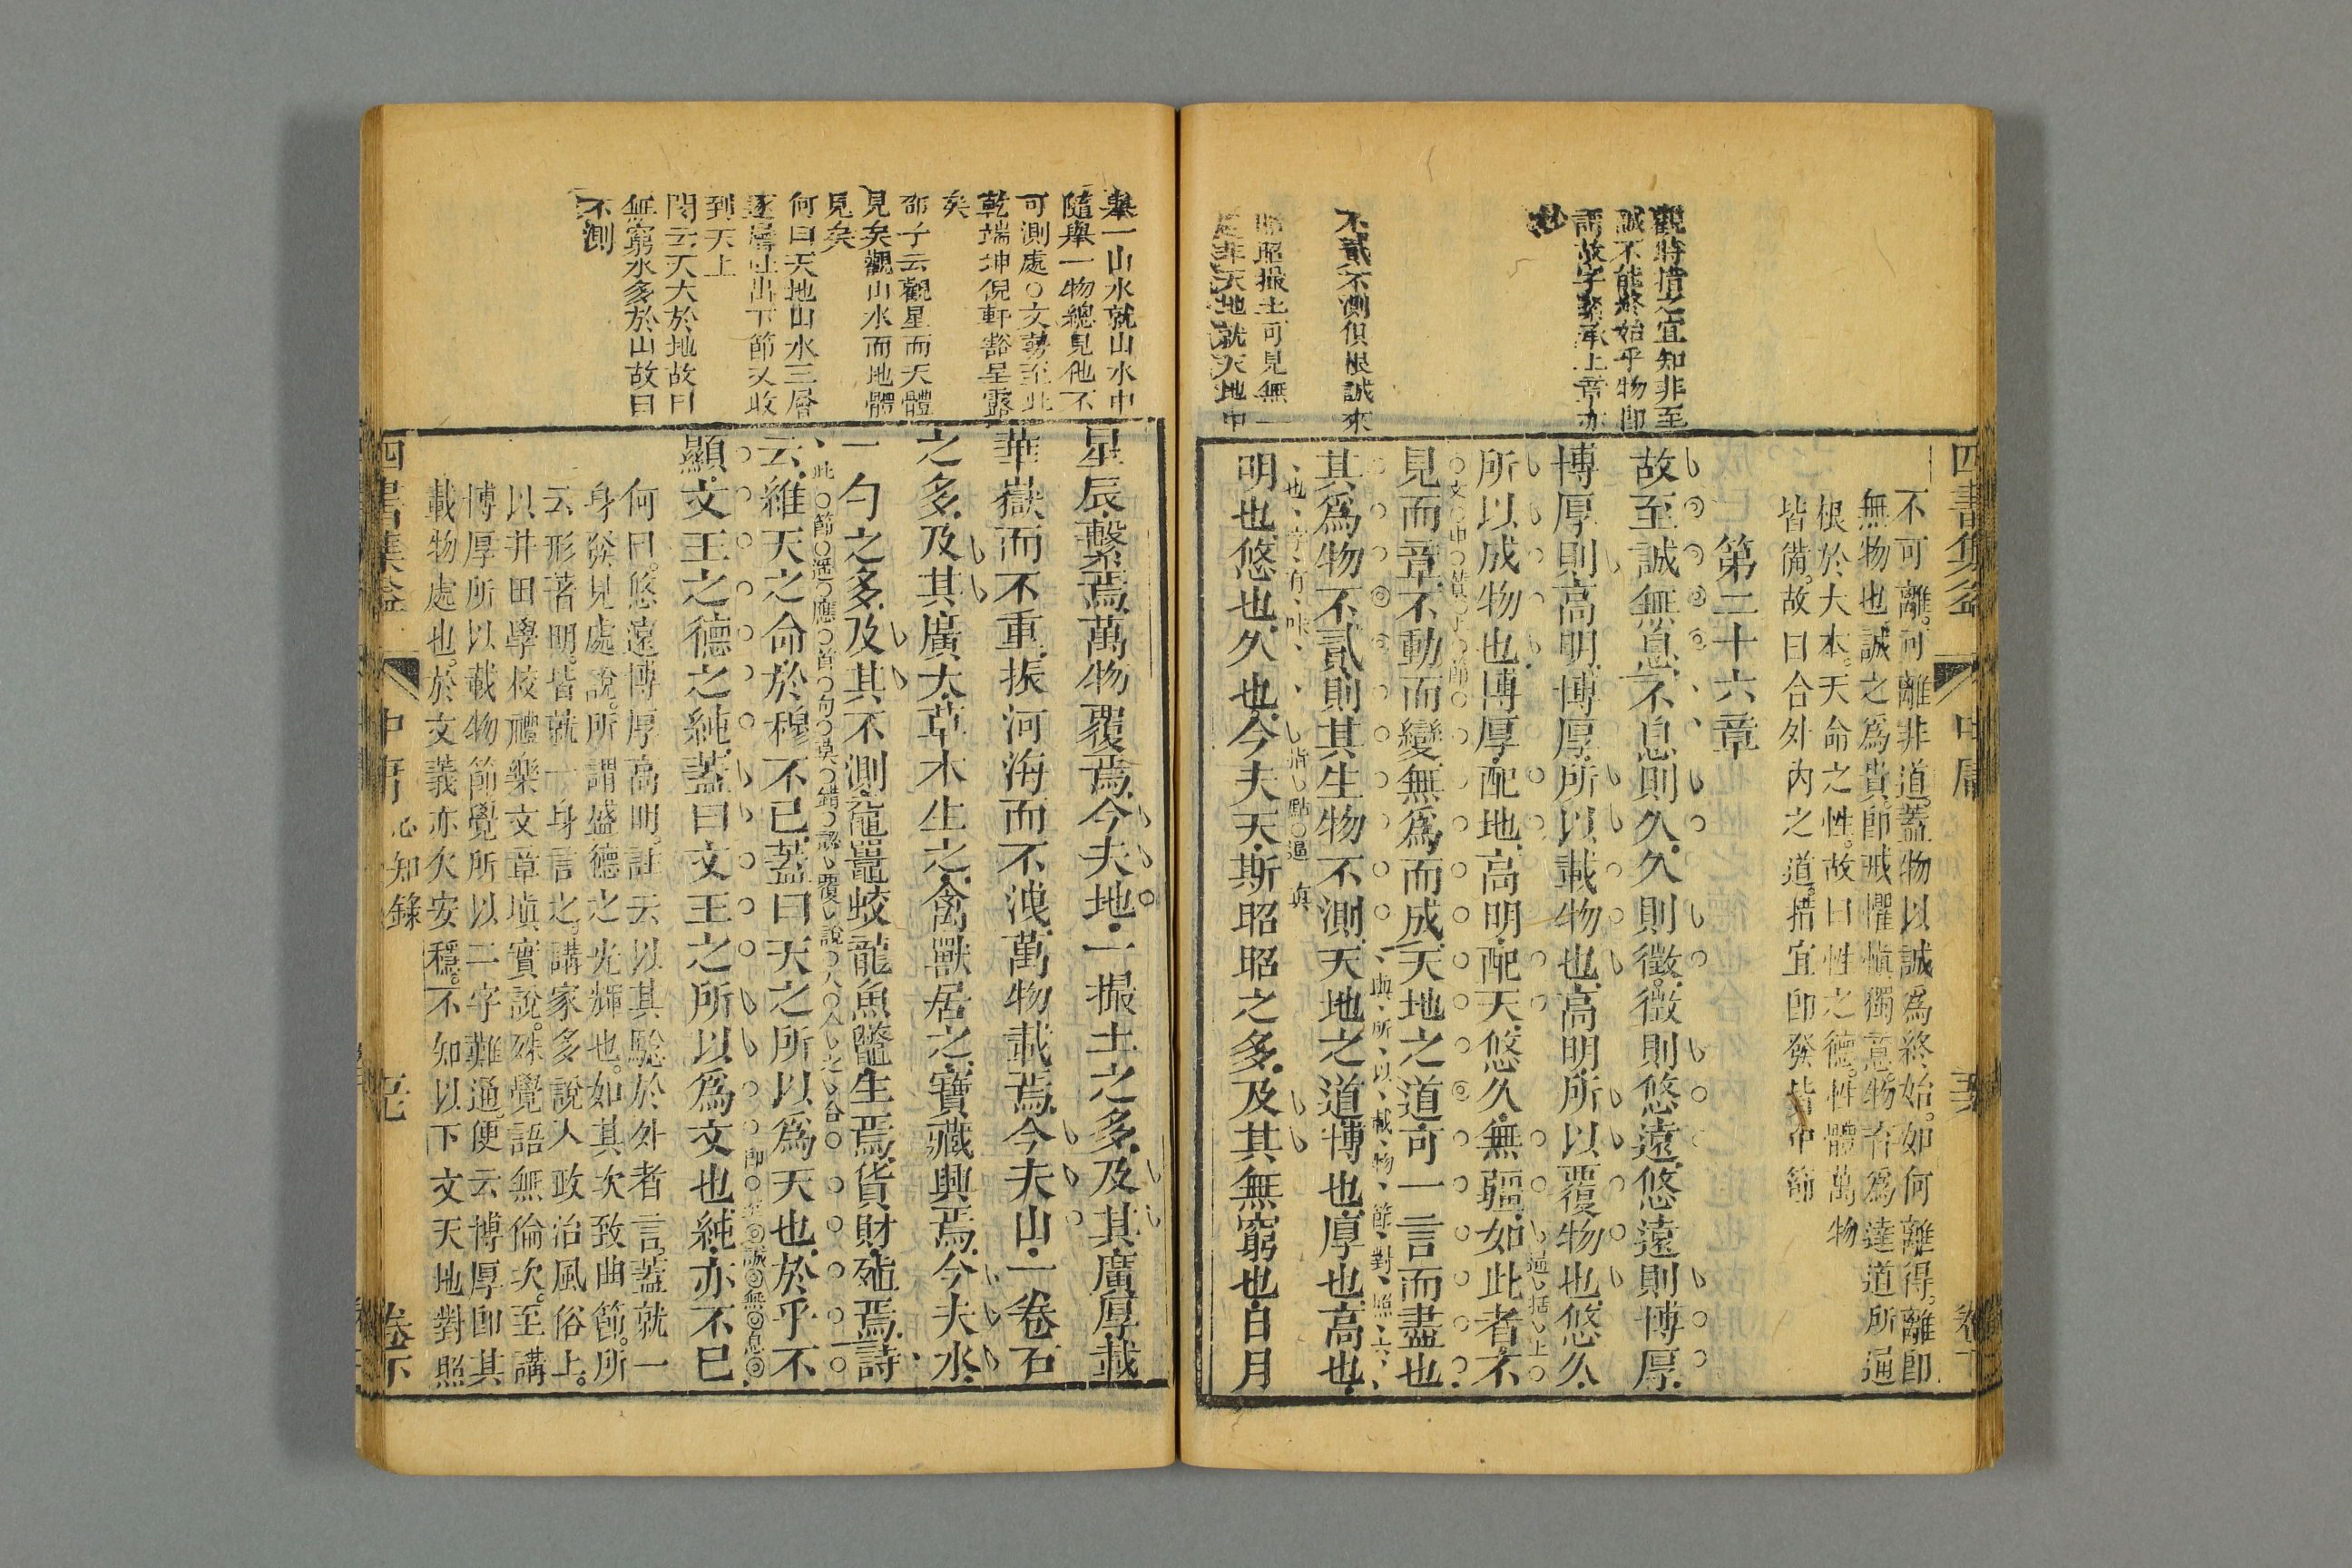 四書集益
中庸
卷下
不可離可離非道蓋物以誠爲終始如何離得離卽
無物也誠之爲貴卽戒懼愼獨意物各爲達道所通
根於大本天命之性故曰性之德性體萬物
皆備故曰合外內之道措宜卽發皆中節
第二十六章
觀時措之宜知非至
誠不能終始乎物卽
謂故字緊承上章亦
妙
故至誠無息不息則久久則徵徵則悠遠悠遠則博厚
博厚則高明博厚所以載物也高明所以覆物也悠久
通括上
所以成物也博厚配地高明配天悠久無疆如此者不
見而章不動而變無爲而成天地之道可一言而盡也
與所以載物節對照
不貳不測俱根誠來
其爲物不貳則其生物不測天地之道博也厚也高也
也字有味
昭昭撮土可見無一
是非天地就天地中
明也悠也久也今夫天斯昭昭之多及其無窮也日月
舉一山水就山水中
隨舉一物總見他不
可測處○文勢至此
乾端坤倪軒豁呈露
矣
邵子云觀星而天體
見矣觀山水而地體
見矣
何曰天地山水三層
逐層吐出下節又收
到天上
閔云天大於地故曰
無窮水多於山故曰
不測
星辰繫焉萬物覆焉今夫地一撮土之多及其廣厚載
華嶽而不重振河海而不洩萬物載焉今夫山一卷石
之多及其廣大草木生之禽獸居之寶藏興焉今夫水
一勺之多及其不測黿鼉蛟龍魚鼈生焉貨財殖焉詩
此節遙應首句莫錯認覆說天人之合
云維天之命於穆不已蓋曰天之所以爲天也於乎不
卽至誠無息
顯文王之德之純蓋曰文王之所以爲文也純亦不已
何曰悠遠博厚高明註云以其驗於外者言蓋就一
身發見處說所謂盛德之光輝也如其次致曲節所
云形著明皆就一身言之講家多說入政治風俗上
以井田學校禮樂文章塡實說殊覺語無倫次至講
博厚所以載物節覺所以二字難通便云博厚卽其
載物處也於文義亦欠安穩不知以下文天地對照
四書集益
中庸
心知錄
卷下